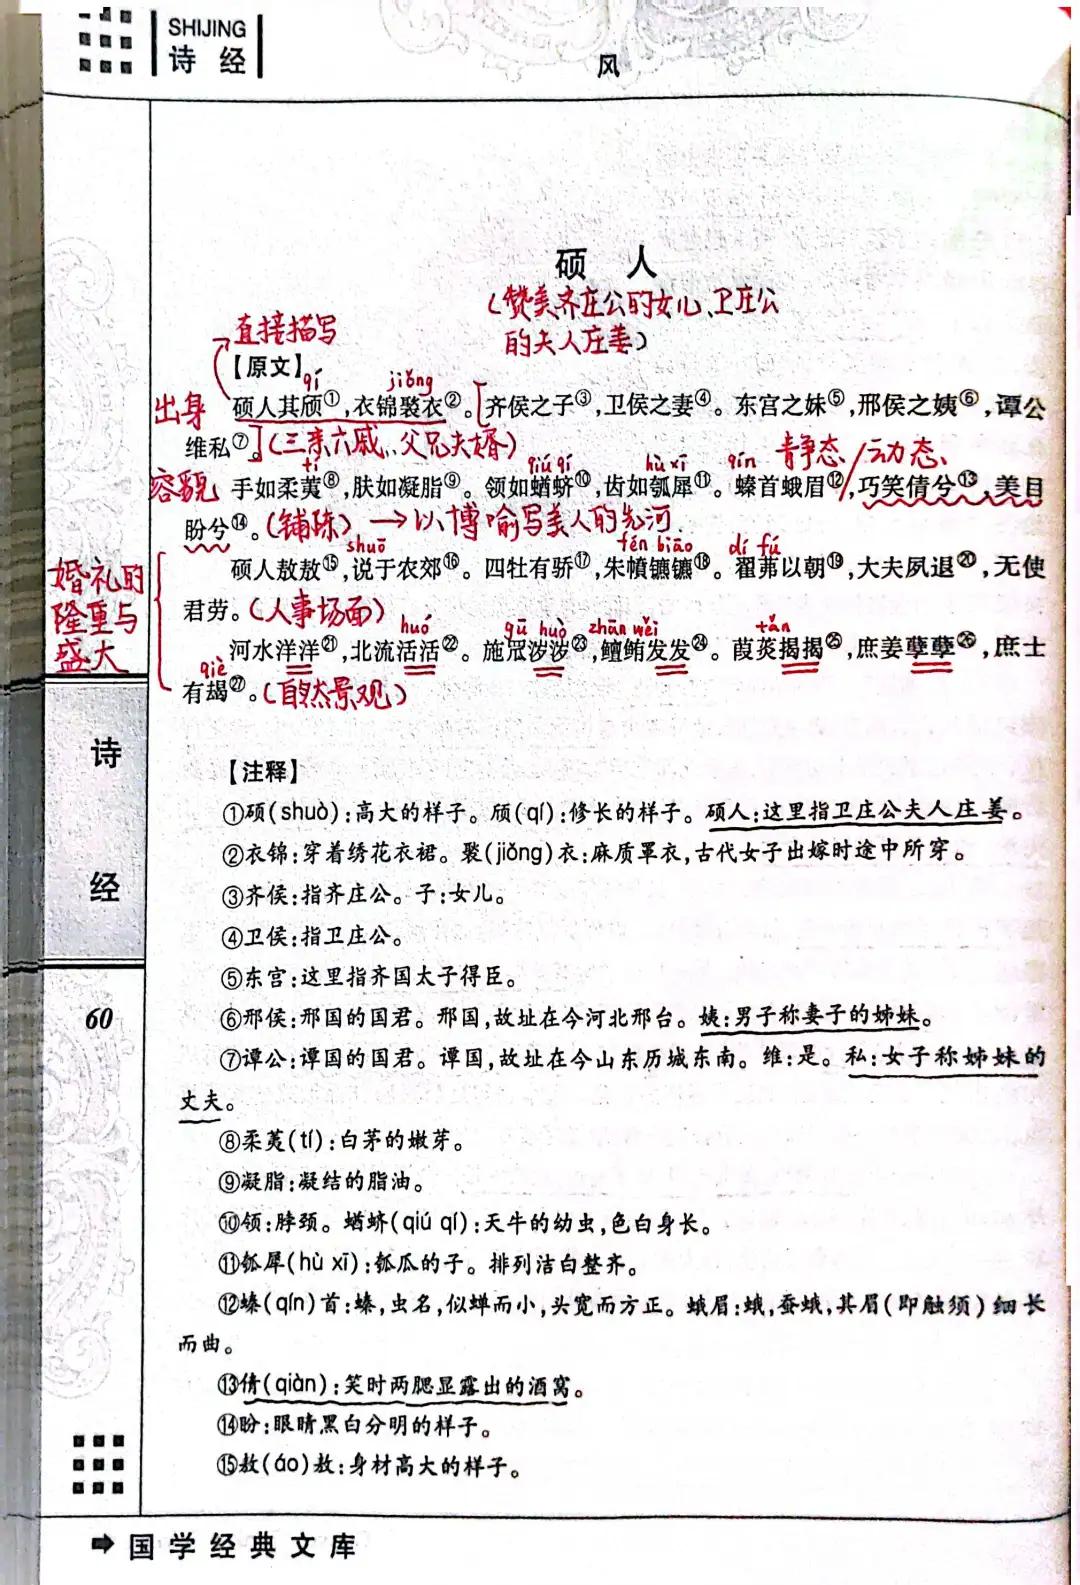 SHIJING
诗 经
风
硕 人
(赞美齐庄公的女儿、卫庄公
的夫人庄姜)
直接描写
【原文】
qí jiǒng
出身 硕人其颀①,衣锦褧衣②。齐侯之子③,卫侯之妻④。东宫之妹⑤,邢侯之姨⑥,谭公
维私⑦。(三亲六戚、父兄夫婿)
静态/动态
tí qiú qí hù xī qín
容貌 手如柔荑⑧,肤如凝脂⑨。领如蝤蛴⑩,齿如瓠犀⑪。螓首蛾眉⑫,巧笑倩兮⑬,美目
盼兮⑭。(铺陈)→以博喻写美人的先河.
shuō fén biāo dí fú
硕人敖敖⑮,说于农郊⑯。四牡有骄⑰,朱幩镳镳⑱。翟茀以朝⑲,大夫夙退⑳,无使
君劳。(人事场面)
婚礼的
隆重与
盛大
huó gū huò zhān wěi tǎn
河水洋洋㉑,北流活活㉒。施罛濊濊㉓,鳣鲔发发㉔。葭菼揭揭㉕,庶姜孽孽㉖,庶士
qiè
有朅㉗。(自然景观)
【注释】
①硕(shuò):高大的样子。颀(qí):修长的样子。硕人:这里指卫庄公夫人庄姜。
②衣锦:穿着绣花衣裙。褧(jiǒng)衣:麻质罩衣,古代女子出嫁时途中所穿。
③齐侯:指齐庄公。子:女儿。
④卫侯:指卫庄公。
⑤东宫:这里指齐国太子得臣。
⑥邢侯:邢国的国君。邢国,故址在今河北邢台。姨:男子称妻子的姊妹。
⑦谭公:谭国的国君。谭国,故址在今山东历城东南。维:是。私:女子称姊妹的
丈夫。
⑧柔荑(tí):白茅的嫩芽。
⑨凝脂:凝结的脂油。
⑩领:脖颈。蝤蛴(qiú qí):天牛的幼虫,色白身长。
⑪瓠犀(hù xī):瓠瓜的子。排列洁白整齐。
⑫螓(qín)首:螓,虫名,似蝉而小,头宽而方正。蛾眉:蛾,蚕蛾,其眉(即触须)细长
而曲。
⑬倩(qiàn):笑时两腮显露出的酒窝。
⑭盼:眼睛黑白分明的样子。
⑮敖(áo)敖:身材高大的样子。
诗
经
60
国学经典文库